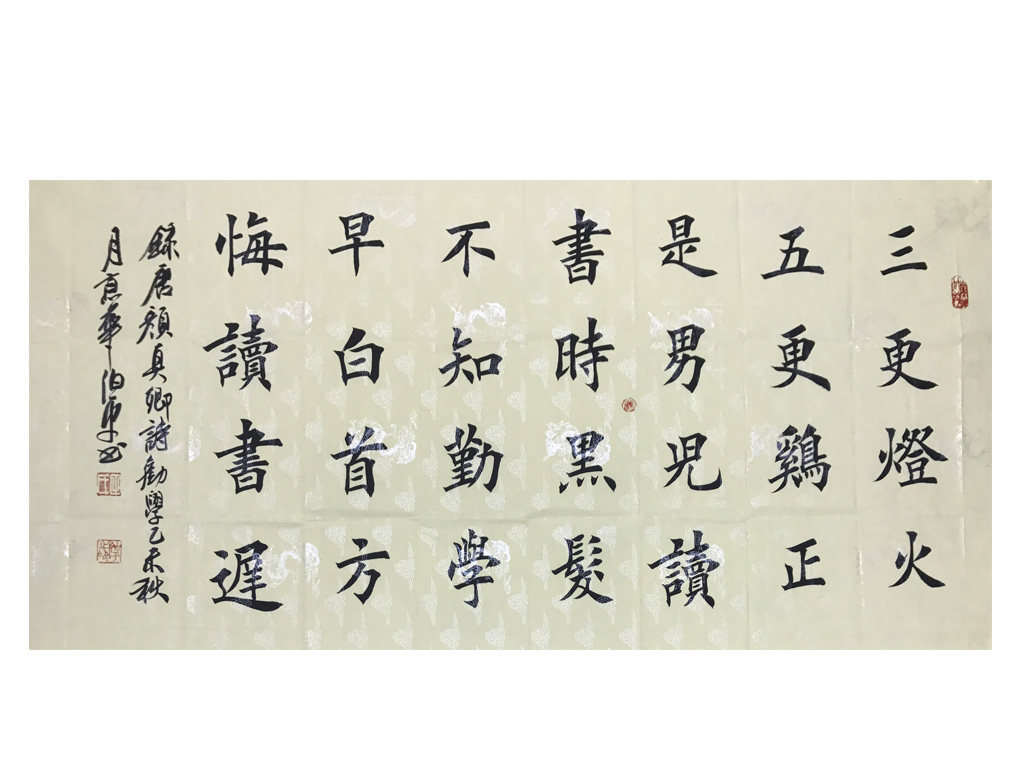 三更燈火
五更鷄正
是男児讀
書時黒髮
不知勤學
早白首方
悔讀書遲
錄唐顏真卿詩勸學乙未秋
月京華伯